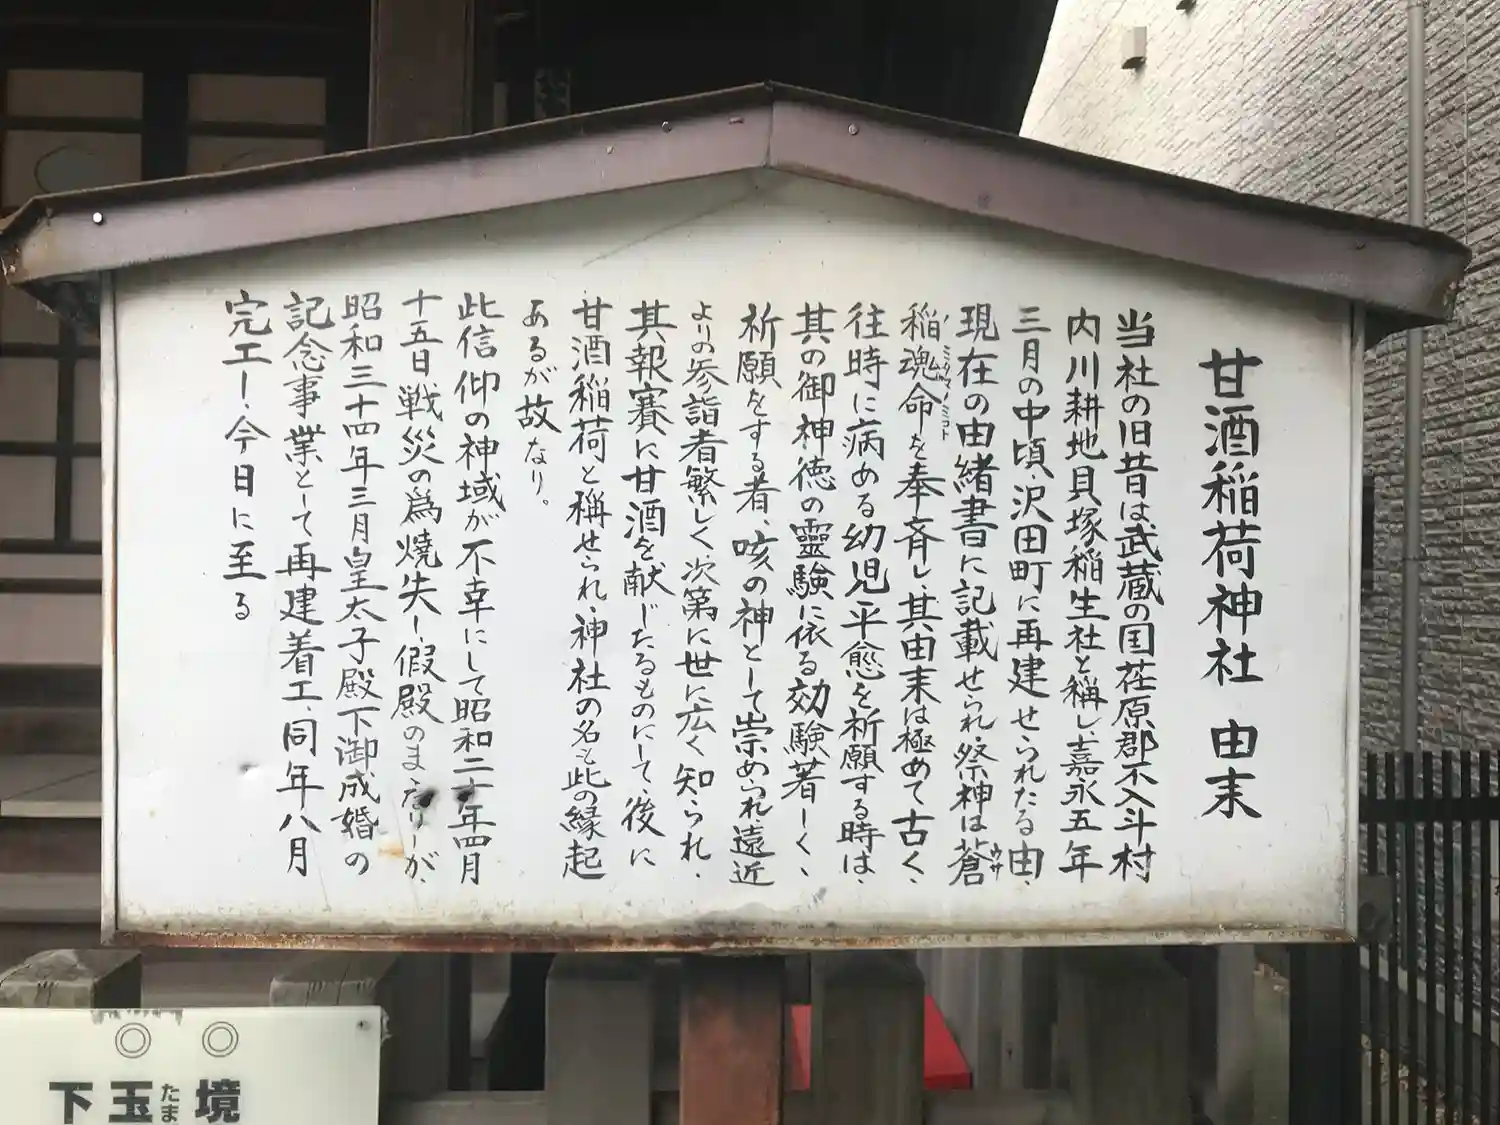 甘酒稲荷神社 由来
当社の旧昔は武蔵の国荏原郡不入斗村
内川耕地貝塚稲生社と稱し、嘉永五年
三月の中頃、沢田町に再建せられたる由、
現在の由緒書に記載せられ、祭神は蒼
ウカ
稲魂命を奉斉し、其由来は極めて古く、
ノミタマノミコト
往時に病める幼児平愈を祈願する時は、
其の御神徳の靈験に依る効験著しく、
祈願をする者、咳の神として崇められ遠近
よりの参詣者繁しく、次第に世に広く知られ、
其報賽に甘酒を献じたるものにして、後に
甘酒稲荷と稱せられ、神社の名も此の縁起
あるが故なり。
此信仰の神域が不幸にして昭和二十年四月
十五日戦災の爲焼失し、假殿のまゝなりしが、
昭和三十四年三月皇太子殿下御成婚の
記念事業として再建着工、同年八月
完工し、今日に至る
◎ ◎
下 玉 境
たま